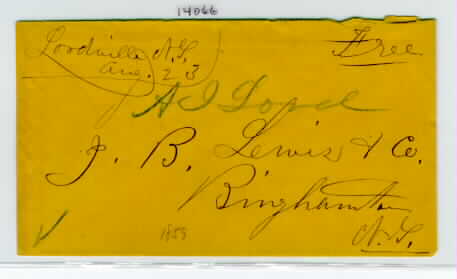 14066
Lordville N.Y.
Aug. 23
Free
A J Lord
J. B. Lewis & Co.
Binghamton
N.Y.
1858